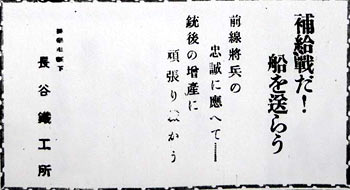 補給戰だ!
船を送らう
前線將兵の
忠誠に應へて――
銃後の增產に
頑張り かう
長谷鐵工所